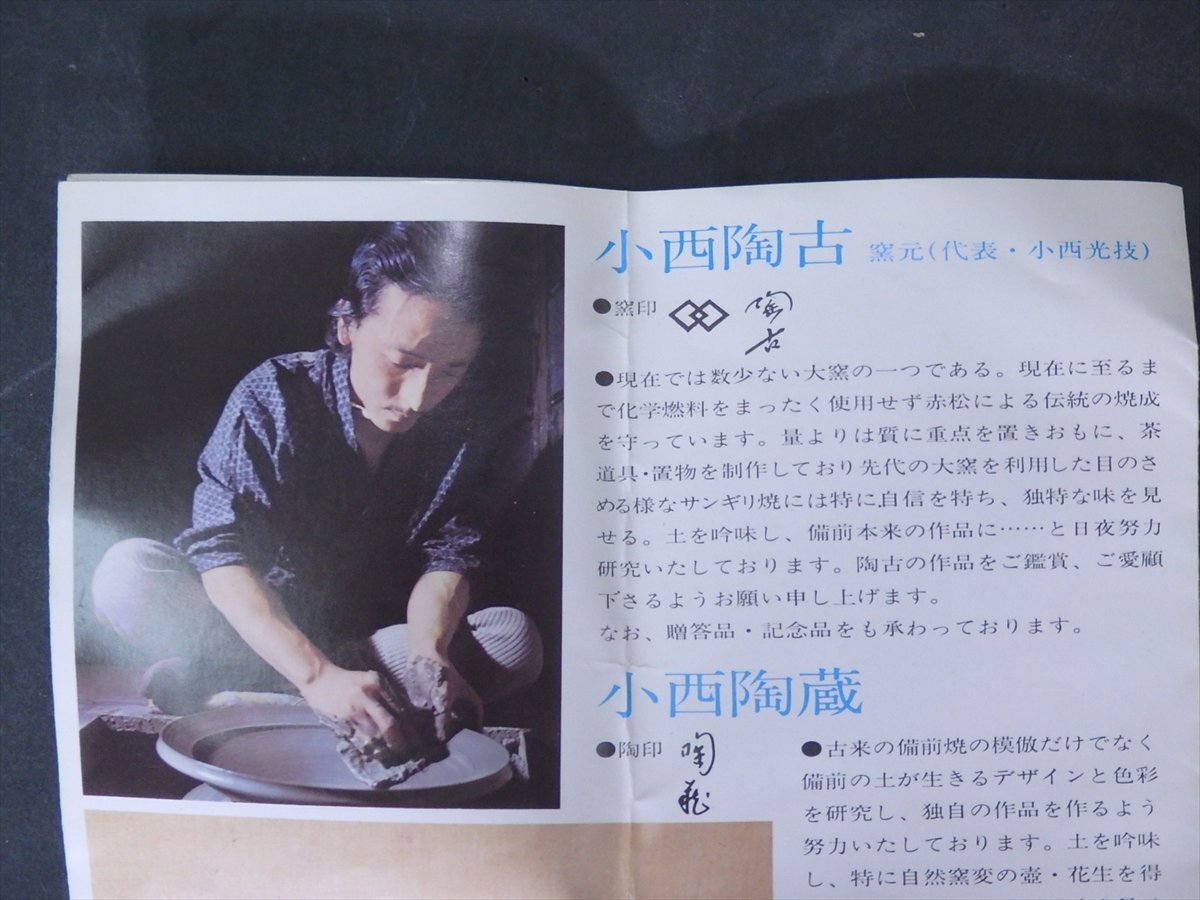 小西陶古 窯元(代表・小西光技)
●窯印 陶古
●現在では数少ない大窯の一つである。現在に至るま
で化学燃料をまったく使用せず赤松による伝統の焼成
を守っています。量よりは質に重点を置きおもに、茶
道具・置物を制作しており先代の大窯を利用した目のさ
める様なサンギリ焼には特に自信を持ち、独特な味を見
せる。土を吟味し、備前本来の作品に……と日夜努力
研究いたしております。陶古の作品をご鑑賞、ご愛顧
下さるようお願い申し上げます。
なお、贈答品・記念品をも承わっております。
小西陶蔵
●陶印 陶蔵
●古来の備前焼の模倣だけでなく
備前の土が生きるデザインと色彩
を研究し、独自の作品を作るよう
努力いたしております。土を吟味
し、特に自然窯変の壺・花生を得